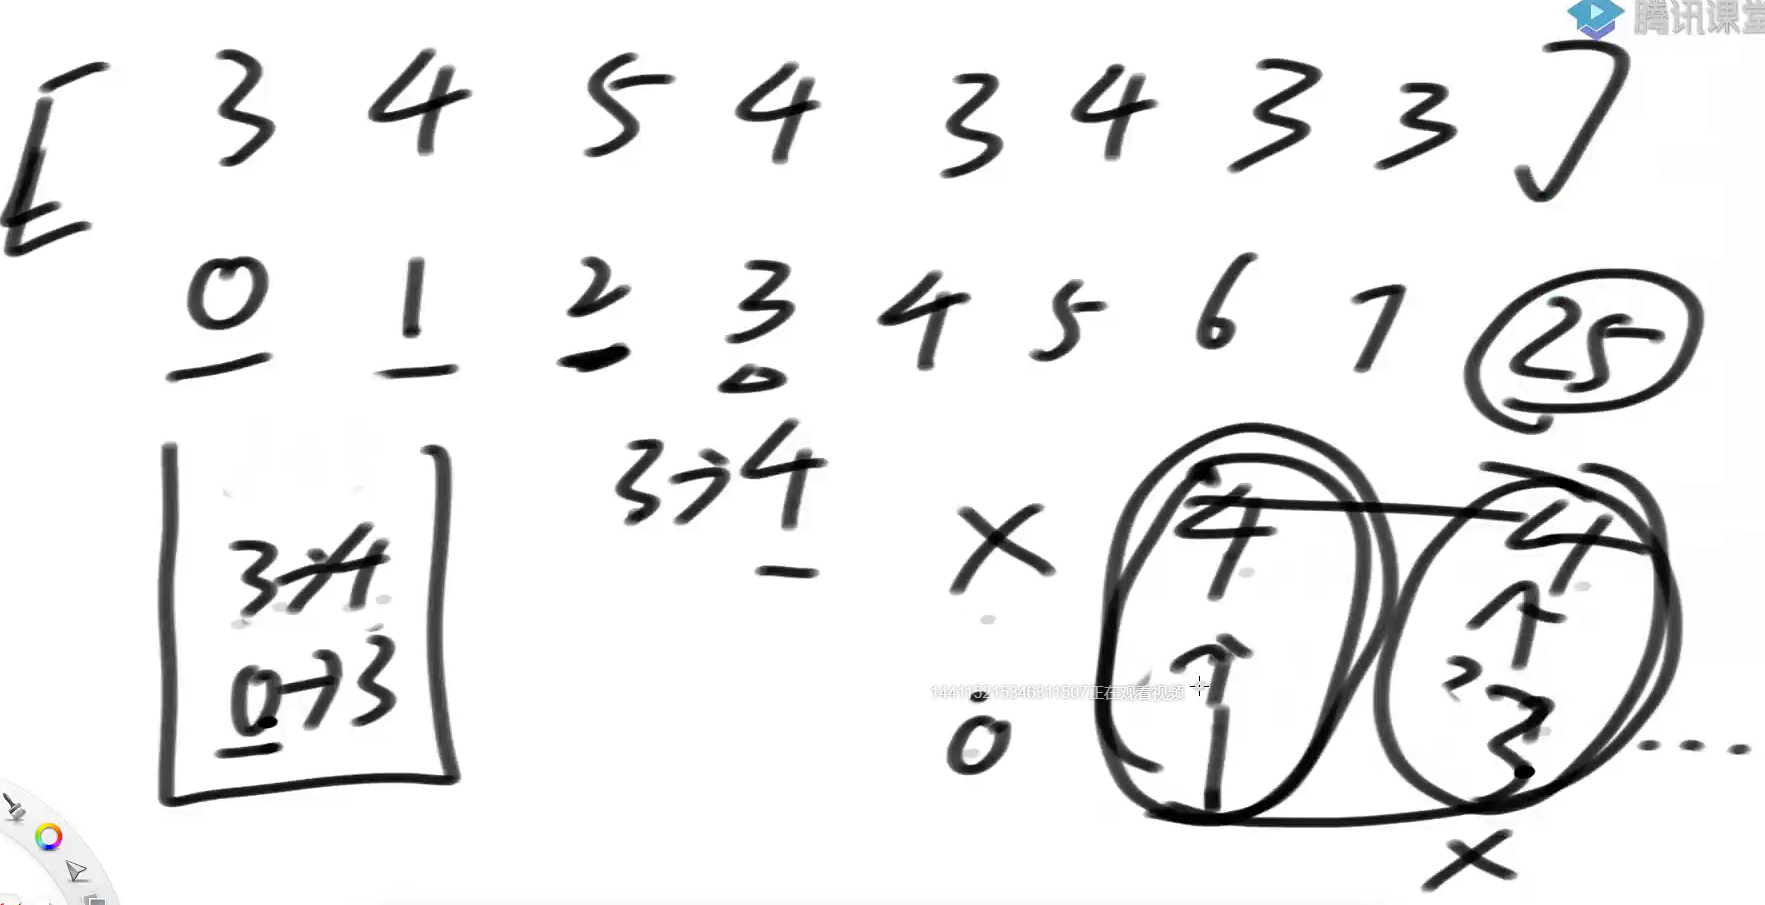 腾讯课堂
[ 3 4 5 4 3 4 3 3 ]
0 1 2 3 4 5 6 7 25
3→4
3→4
0→3
X 4 4
↑ ↑
0 1 3 ....
X
144115215346311507正在观看视频